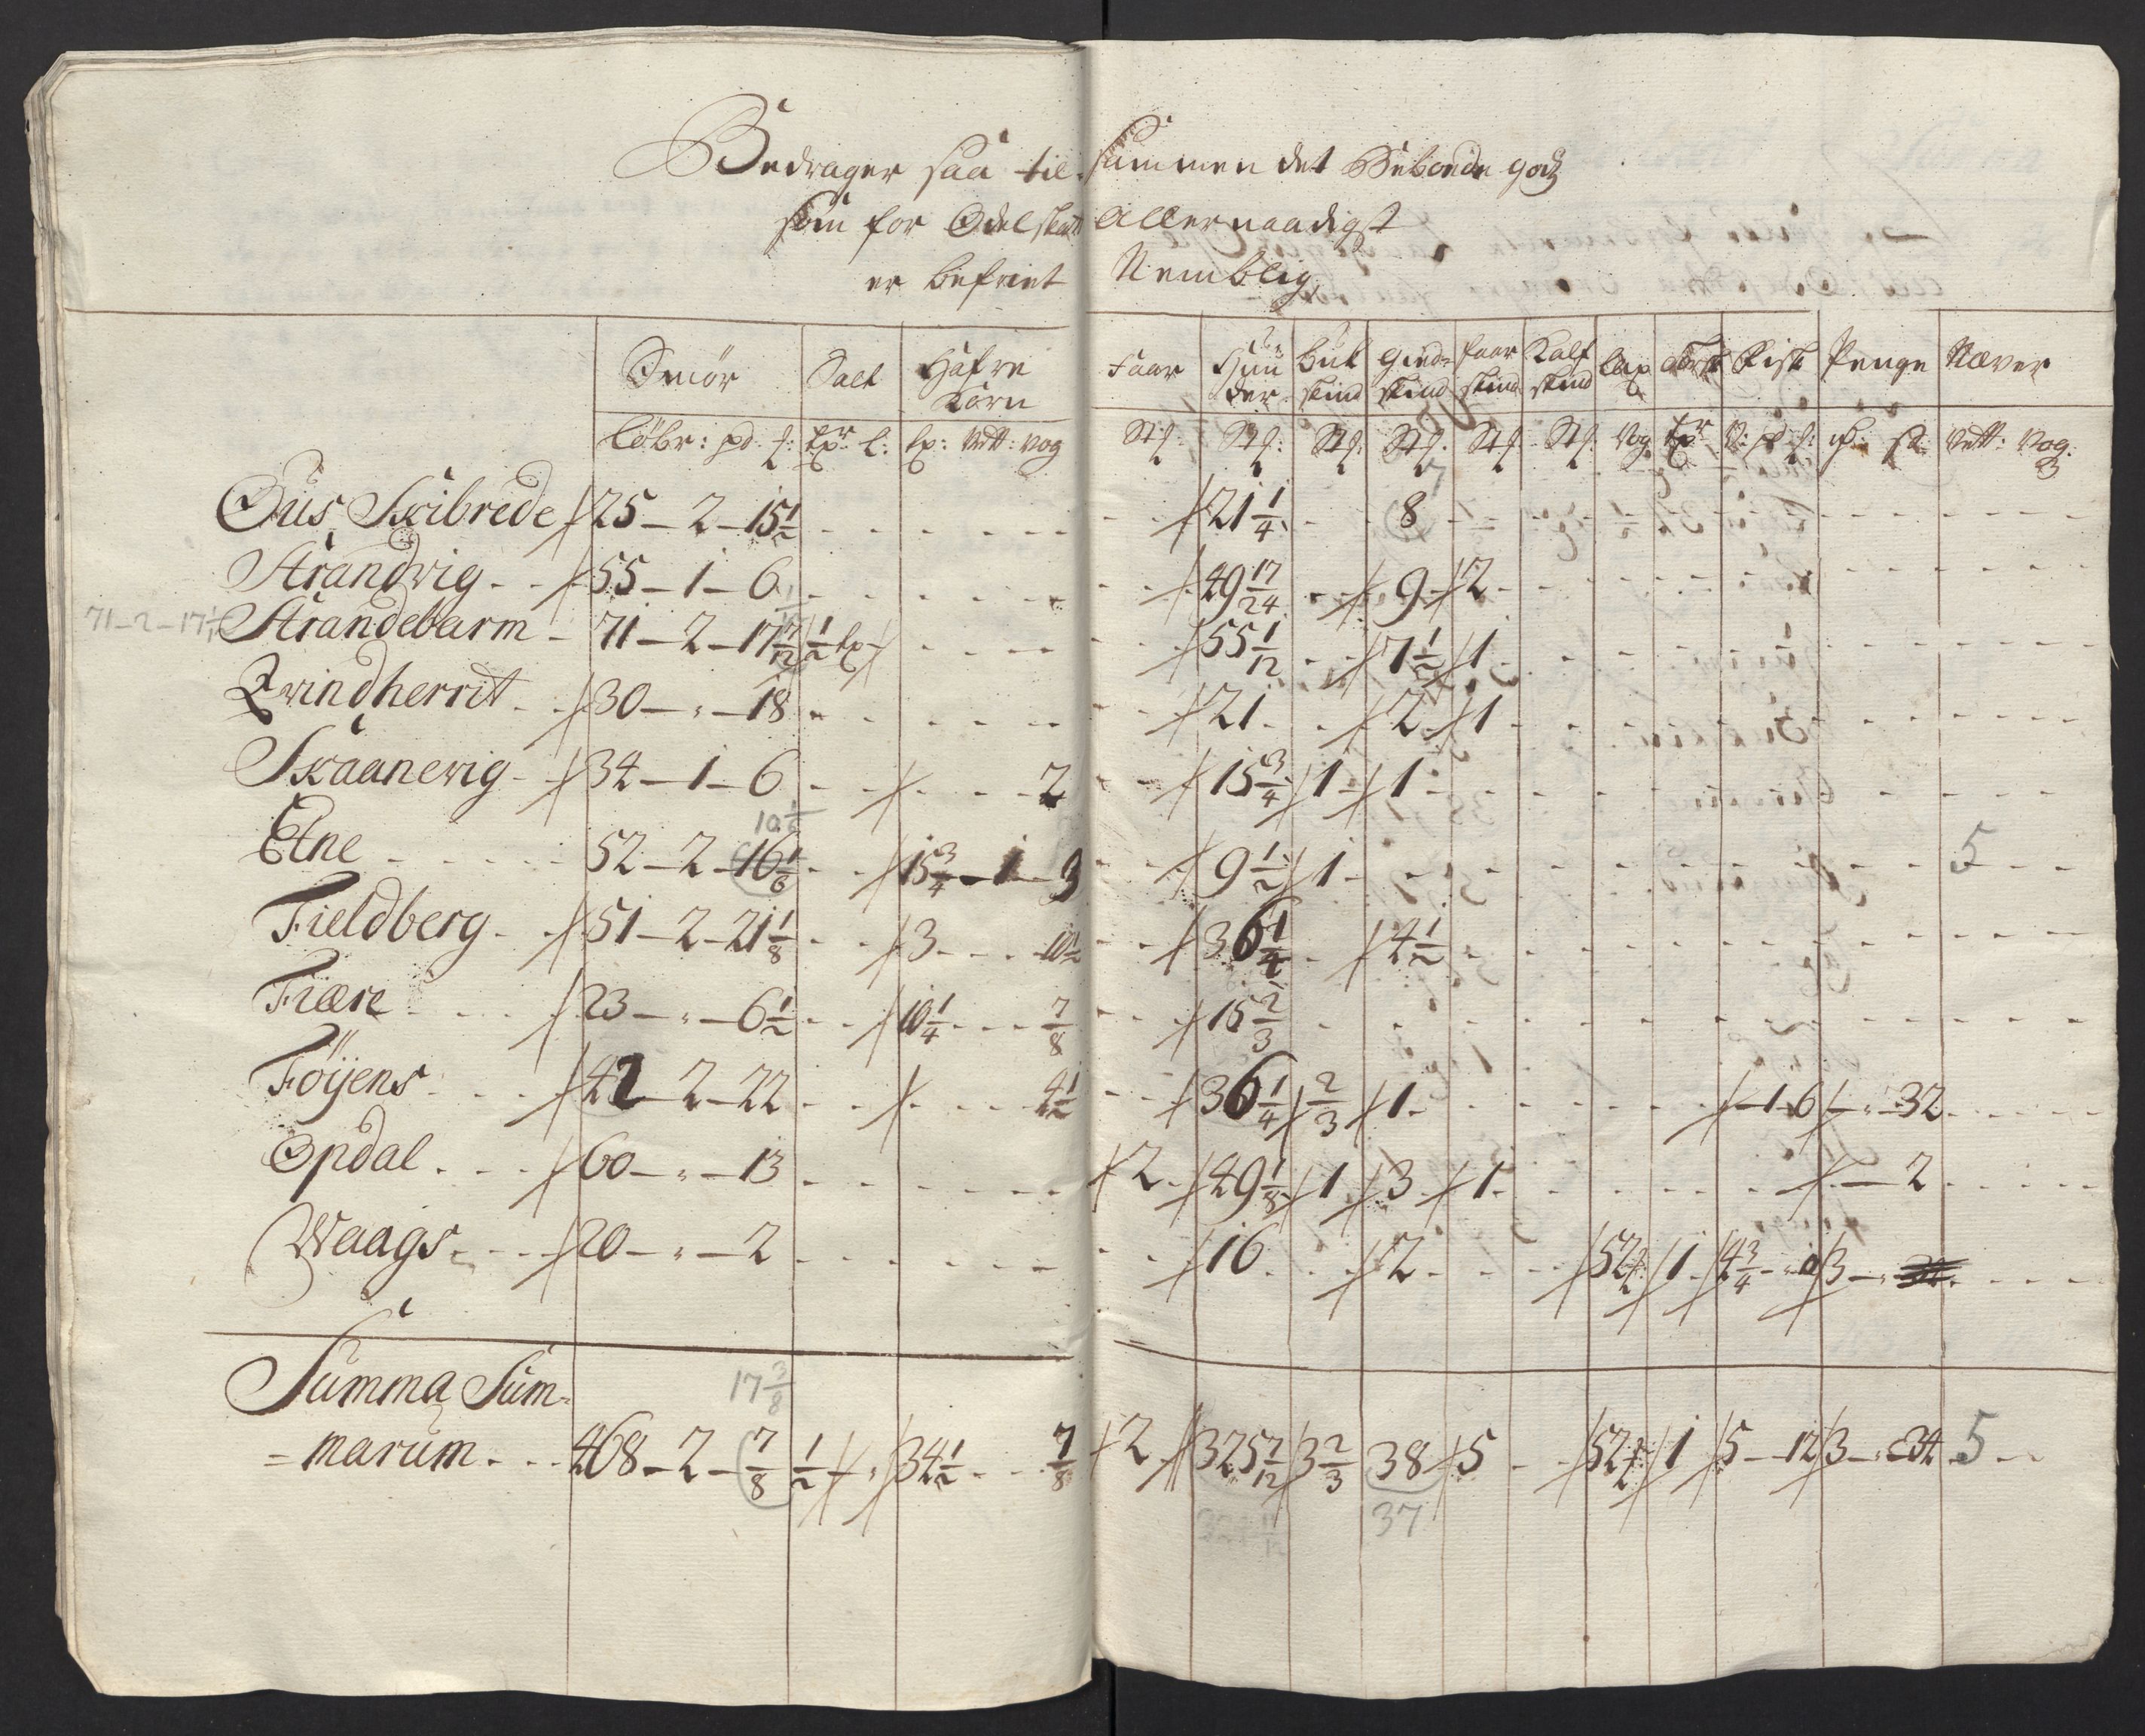 Bedrager saa til sammen det Beboende godz
som for Odelskatt Allernaadigst
er befriet Nemblig
Smör Salt Hafre Korn Faar Huuder Buk skind Giede skind faar skind Kalf skind Lax Torsk Fisk Penge Næver
Löbr: pd: Vett: vog St: St: St: St: St: St: Vog Vett: Vog:
Ous Skibrede 25 - 2 - 15 1/2 21 1/4 8
7
Strandvig 55 - 1 - 6 49 17/24 9 2
71 - 2 - 17 Strandebarm 71 - 2 - 17 7/12 1/2 55 1/12 7 1/2 1
Qvindherrit 30 - " - 18 21 2 1
Skaanevig 34 - 1 - 6 2 15 3/4 1 1
10 1/6
Etne 52 - 2 - 16 1/6 15 3/4 - 1 - 3 9 1/2 1 5
Fieldberg 51 - 2 - 21 1/8 3 10 1/2 36 1/4 4 1/2
Fiære 23 - " - 6 1/2 10 1/4 7/8 15 2/3
Föyens 42 - 2 - 22 4 1/2 36 1/4 2/3 1 1 6 " 32
Opdal 60 - " - 13 2 49 1/8 1 3 1 2
Waags 20 - " - 2 16 2 52 1 4 3/4 3
17 3/8
Summa Sum=
=marum 468 - 2 - 7/8 1/2 34 1/2 7/8 2 325 7/12 3 2/3 38 5 52 1 5 - 12 3 - " 34 5
37